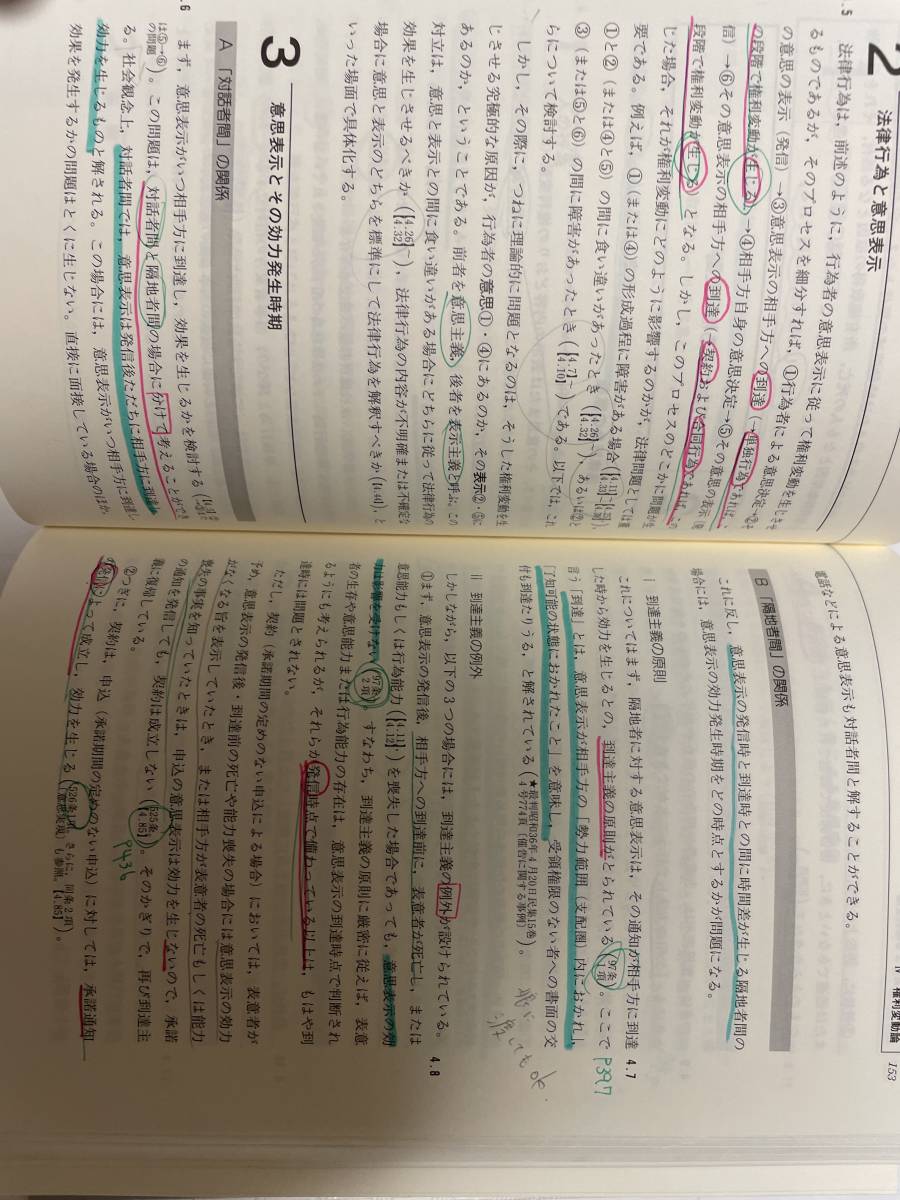 2 法律行為と意思表示
法律行為は，前述のように，行為者の意思表示に従って権利変動を生じさせ
るものであるが，そのプロセスを細分すれば，①行為者による意思決定→②そ
の意思の表示（発信）→③意思表示の相手方への到達（→単独行為であれば，こ
の段階で権利変動が生じる）→④相手方自身の意思決定→⑤その意思の表示（発
信）→⑥その意思表示の相手方への到達（→契約および合同行為であれば，この
段階で権利変動が生じる）となる。しかし，このプロセスのどこかに問題が生
じた場合，それが権利変動にどのように影響するのかが，法律問題としては重
要である。例えば，①（または④）の形成過程に障害がある場合
①と②（または④と⑤）の間に食い違いがあったとき（【4.26】～【4.32】），あるいは②と
③（または⑤と⑥）の間に障害があったとき（【4.7】～【4.10】）である。以下では，これ
らについて検討する。
しかし，その際に，つねに理論的に問題となるのは，そうした権利変動を生
じさせる究極的な原因が，行為者の意思①・④にあるのか，その表示②・⑤に
あるのか，ということである。前者を意思主義，後者を表示主義と呼ぶ。この
対立は，意思と表示との間に食い違いがある場合にどちらに従って法律行為の
効果を生じさせるべきか（【4.26】～【4.32】），法律行為の内容が不明確または不確定な
場合に意思と表示のどちらを標準にして法律行為を解釈すべきか（【4.41】），と
いった場面で具体化する。
3 意思表示とその効力発生時期
A 「対話者間」の関係
.6
まず，意思表示がいつ相手方に到達し，効果を生じるかを検討する
の問題）。この問題は，対話者間と隔地者間の場合に分けて考えることができ
る。社会観念上，対話者間では，意思表示は発信後ただちに相手方に到達し，
効力を生じるものと解される。この場合には，意思表示がいつ相手方に到達し
効果を発生するかの問題はとくに生じない。直接に面接している場合のほか，
Ⅳ 権利変動論 153
電話などによる意思表示も対話者間と解することができる。
B 「隔地者間」の関係
これに反し，意思表示の発信時と到達時との間に時間差が生じる隔地者間の
場合には，意思表示の効力発生時期をどの時点とするかが問題になる。
i 到達主義の原則
4.7
これについてはまず，隔地者に対する意思表示は，その通知が相手方に到達
した時から効力を生じるとの，到達主義の原則がとられている（97条1項）。ここで
P397
言う「到達」とは，意思表示が相手方の「勢力範囲（支配圏）内におかれ」，
「了知可能の状態におかれたこと」を意味し，受領権限のない者への書面の交
付も到達たりうる，と解されている（★最判昭和36年4月20日民集15巻4号774頁（催告に関する事例））。
ii 到達主義の例外
4.8
しかしながら，以下の3つの場合には，到達主義の例外が設けられている。
①まず，意思表示の発信後，相手方への到達前に，表意者が死亡し，または
意思能力もしくは行為能力（【4.11】，【4.12】）を喪失した場合であっても，意思表示の効
力は影響を受けない（97条2項）。すなわち，到達主義の原則に厳密に従えば，表意
者の生存や意思能力または行為能力の存在は，意思表示の到達時点で判断され
るようにも考えられるが，それらが発信時点で備わっている以上は，もはや到
達時には問題とされない。
ただし，契約（承諾期間の定めのない申込による場合）においては，表意者が
予め，意思表示の発信後，到達前の死亡や能力喪失の場合には意思表示の効力
がなくなる旨を表示していたとき，または相手方が表意者の死亡もしくは能力
喪失の事実を知っていたときは，申込の意思表示は効力を生じないので，承諾
の通知を発信しても，契約は成立しない（525条【4.85】）。そのかぎりで，再び到達主
義に復帰している。
P436
②つぎに，契約は，申込（承諾期間の定めのない申込）に対しては，承諾通知
の発信によって成立し，効力を生じる（526条1項。さらに，同条2項（意思実現）も参照。【4.85】）。